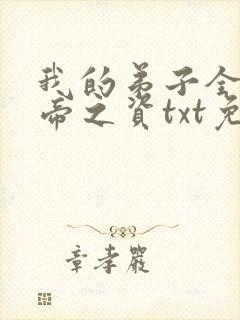 我的弟子全
帝之资txt免
章孝严